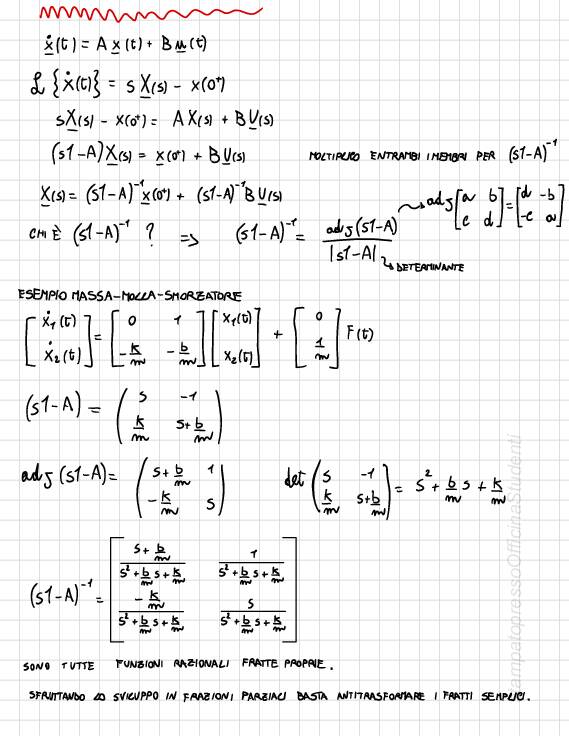 ẋ(t) = A x(t) + B u(t)
ℒ {ẋ(t)} = s X(s) - x(0⁺)
sX(s) - x(0⁺) = A X(s) + B U(s)
(s1-A) X(s) = x(0⁺) + B U(s) MOLTIPLICO ENTRAMBI I MEMBRI PER (s1-A)⁻¹
X(s) = (s1-A)⁻¹ x(0⁺) + (s1-A)⁻¹ B U(s)
CHI È (s1-A)⁻¹ ? => (s1-A)⁻¹ = adj(s1-A) / |s1-A| adj [a b; c d] = [d -b; -c a]
DETERMINANTE
ESEMPIO MASSA-MOLLA-SMORZATORE
[ẋ₁(t); ẋ₂(t)] = [0 1; -k/m -b/m] [x₁(t); x₂(t)] + [0; 1/m] F(t)
(s1-A) = (s -1; k/m s+b/m)
adj (s1-A) = (s+b/m 1; -k/m s) det (s -1; k/m s+b/m) = s² + b/m s + k/m
(s1-A)⁻¹ = [(s+b/m)/(s²+b/m s+k/m) 1/(s²+b/m s+k/m); (-k/m)/(s²+b/m s+k/m) s/(s²+b/m s+k/m)]
SONO TUTTE FUNZIONI RAZIONALI FRATTE PROPRIE.
SFRUTTANDO LO SVILUPPO IN FRAZIONI PARZIALI BASTA ANTITRASFORMARE I FRATTI SEMPLICI.
ampatopressoOfficinaStudenti